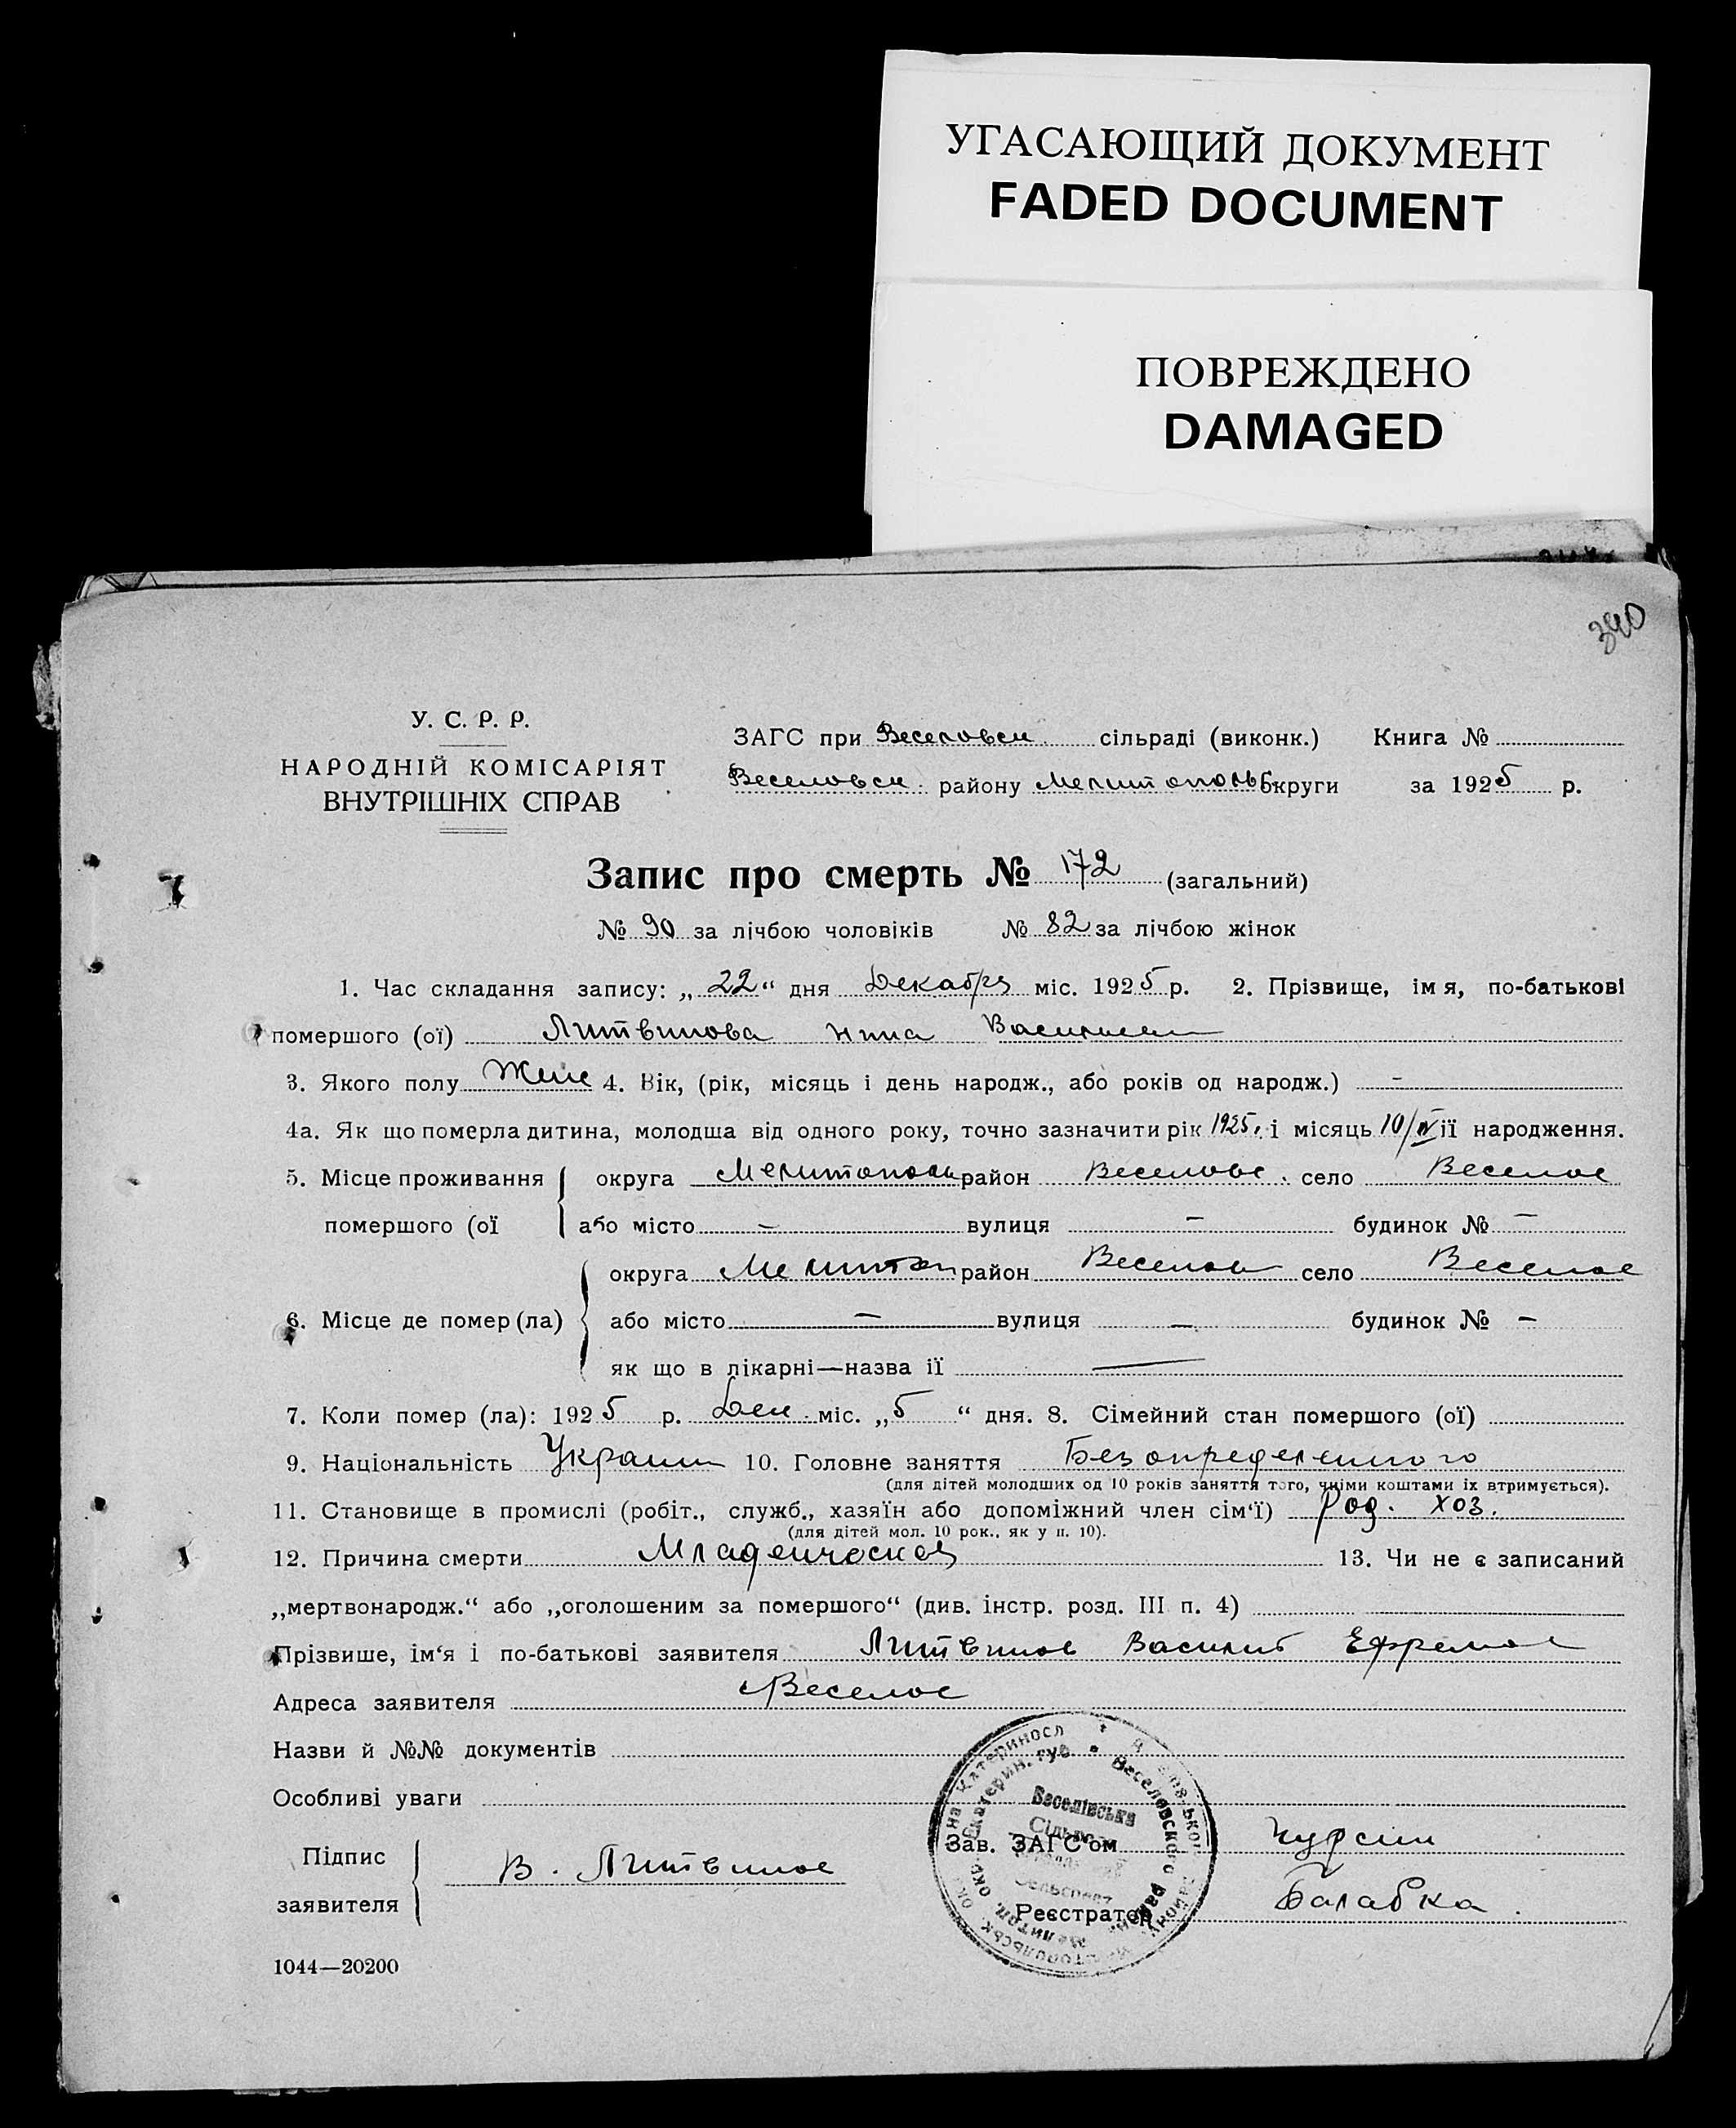 УГАСАЮЩИЙ ДОКУМЕНТ
FADED DOCUMENT
ПОВРЕЖДЕНО
DAMAGED
390
У. С. Р. Р.
НАРОДНІЙ КОМІСАРІЯТ
ВНУТРІШНІХ СПРАВ
ЗАГС при Веселовск. сільраді (виконк.) Книга №
Веселовск. району Мелитопольс округи за 1925 р.
Запис про смерть № 172 (загальний)
№ 90 за лічбою чоловіків № 82 за лічбою жінок
1. Час складання запису: „22“ дня Декабря міс. 1925 р. 2. Прізвище, ім я, по-батькові
помершого (ої) Литвинова Нина Васильевн
3. Якого полу Женс 4. Вік, (рік, місяць і день народж., або років од народж.) -
4а. Як що померла дитина, молодша від одного року, точно зазначити рік 1925. і місяць 10/IV її народження.
5. Місце проживання округа Мелитополь район Веселовс. село Веселое
помершого (ої або місто - вулиця - будинок № -
округа Мелитоп район Веселов село Веселое
6. Місце де помер (ла) або місто - вулиця - будинок № -
як що в лікарні—назва її —
7. Коли помер (ла): 1925 р. Дек. міс. „5“ дня. 8. Сімейний стан помершого (ої)
9. Національність Украин 10. Головне заняття Без определенного
(для дітей молодших од 10 років заняття того, чиїми коштами їх втримується).
11. Становище в промислі (робіт., служб., хазяїн або допоміжний член сім‘ї) Род. хоз.
(для дітей мол. 10 рок., як у п. 10).
12. Причина смерти Младенческая 13. Чи не є записаний
„мертвонародж.“ або „оголошеним за помершого“ (див. інстр. розд. III п. 4)
Прізвише, ім‘я і по-батькові заявителя Литвинов Василий Ефремов
Адреса заявителя Веселое
Назви й №№ документів
Особливі уваги
Веселівська
Сільрада
Підпис
заявителя В. Литвинов
Зав. ЗАГС‘ом
Реєстратор Балабка
1044—20200